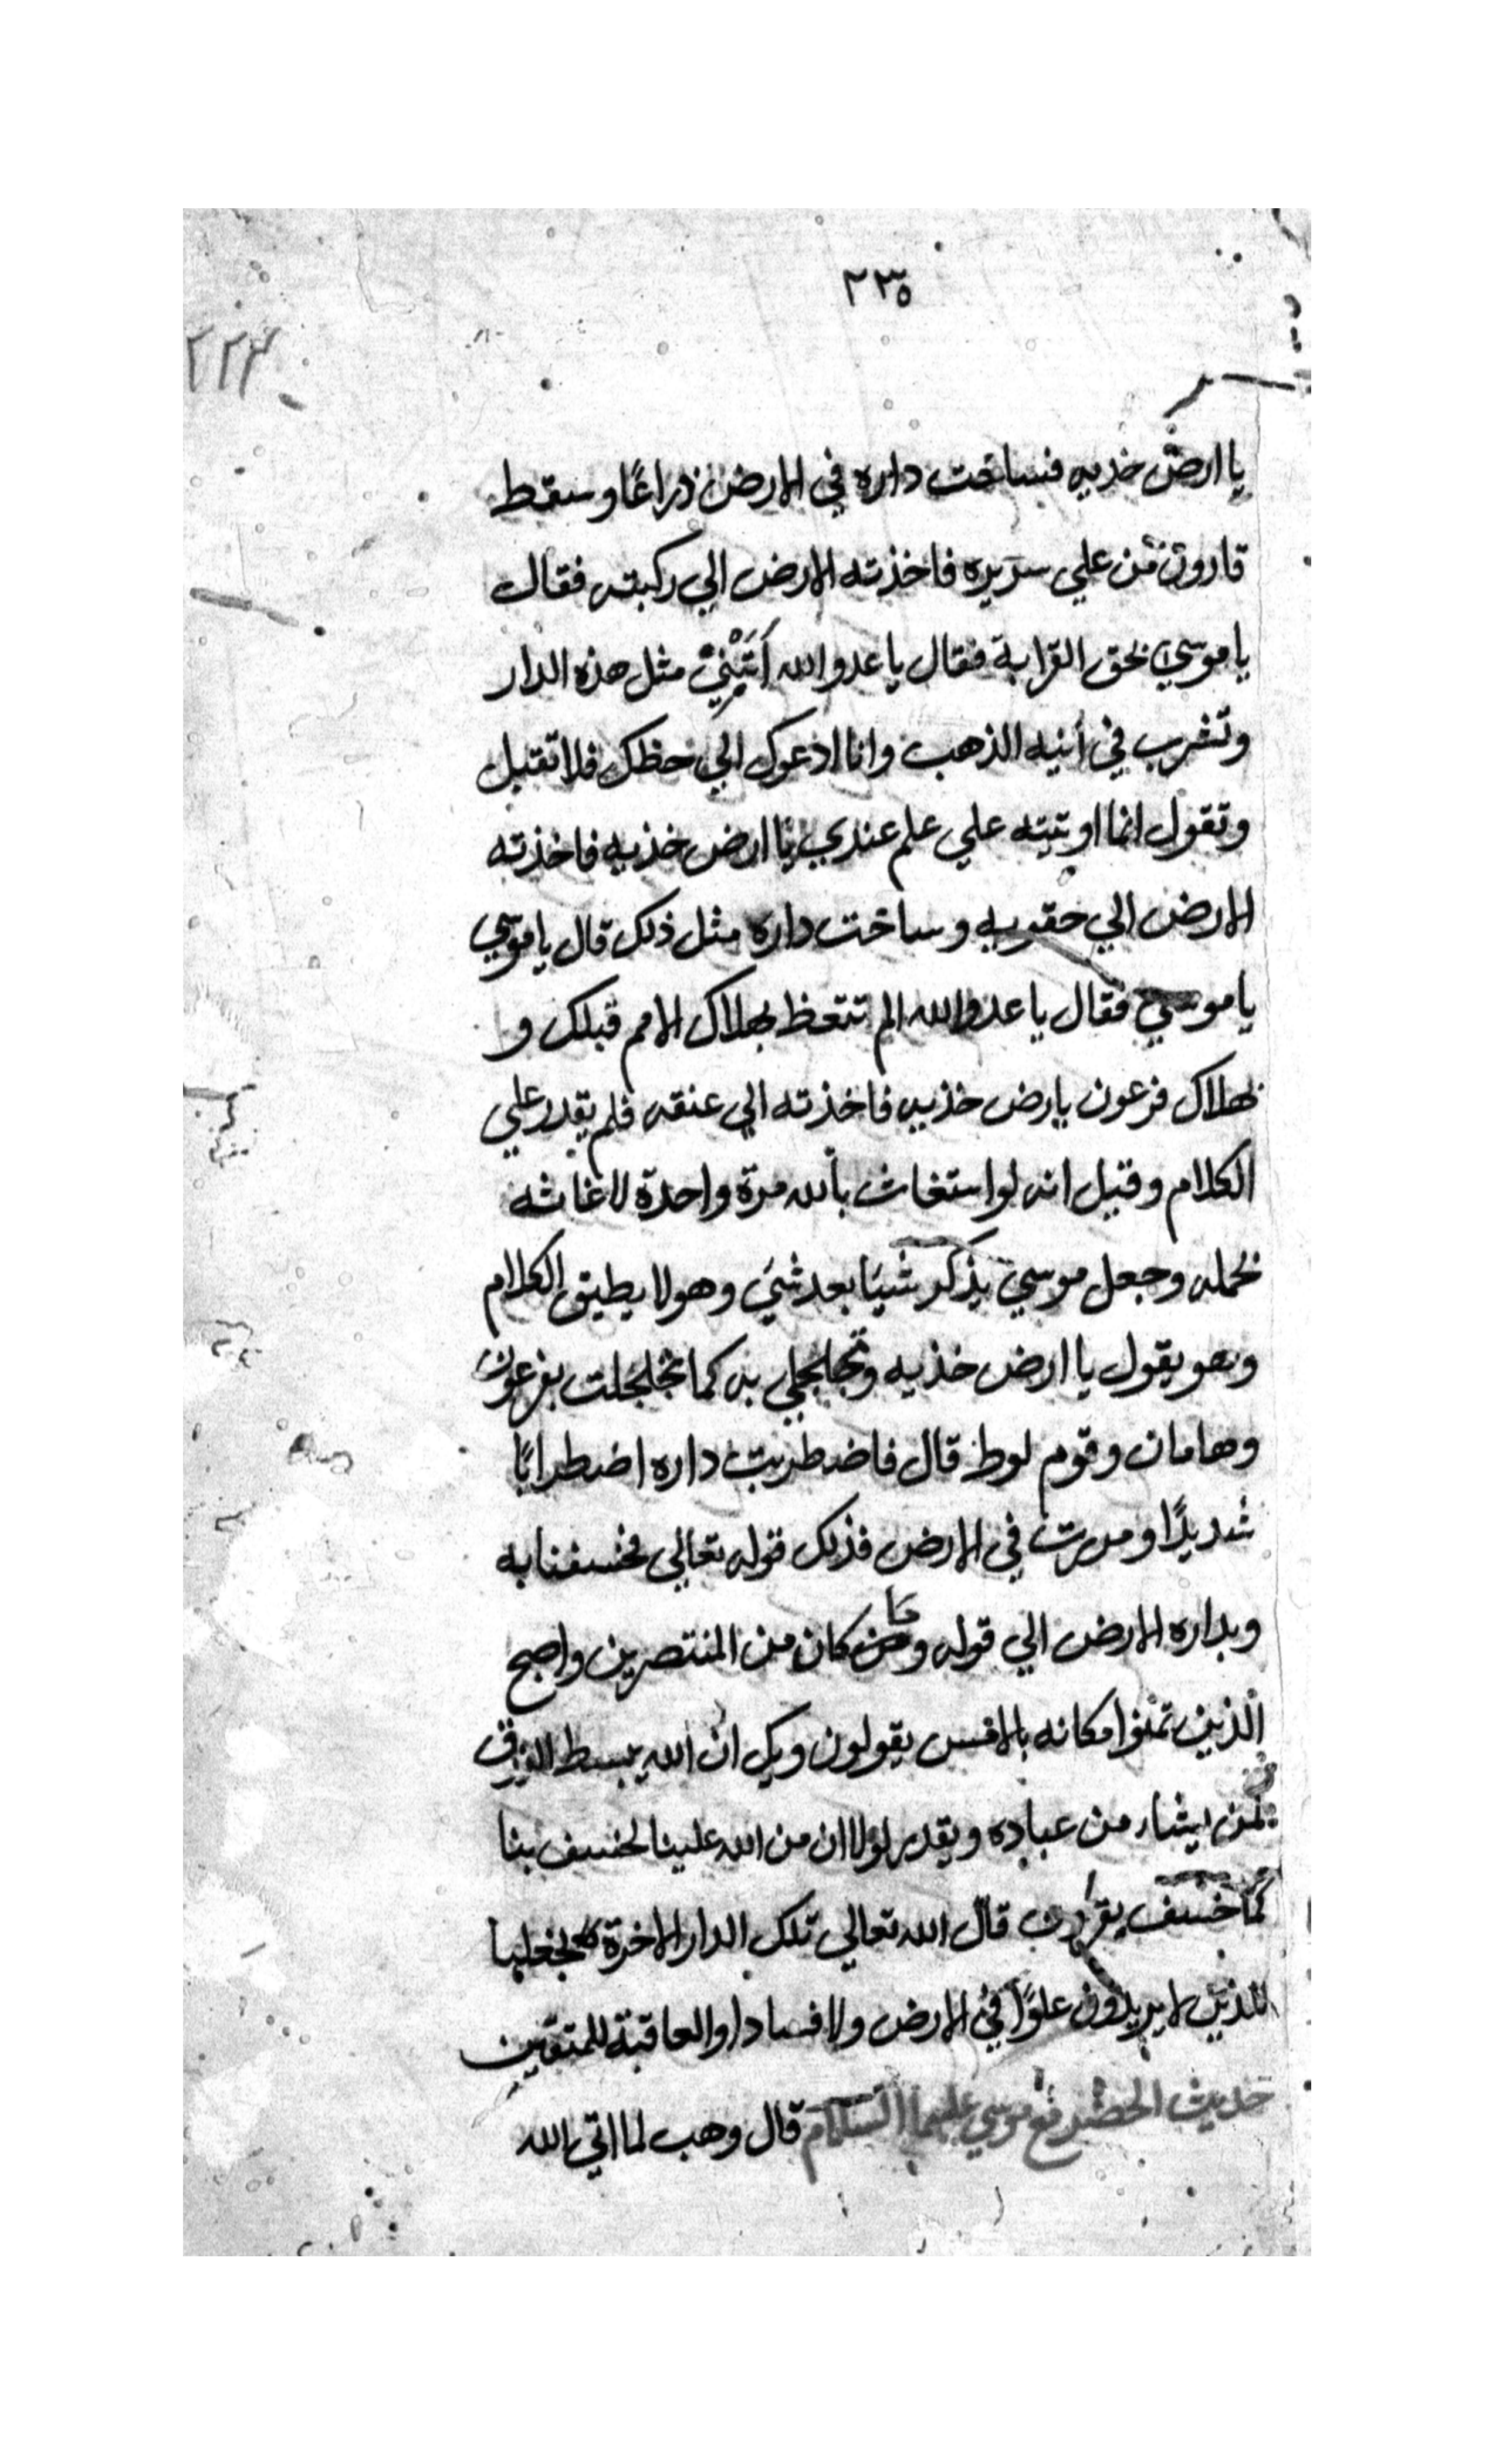 ٢٣٥
٢٢٣
يا ارض خذيه فساخت داره في الارض ذراعًا وسقط
قارون من علي سريره فاخذته الارض الي ركبته فقال
يا موسي بحق القرابة فقال يا عدو الله أَتَبْنِيْ مثل هذه الدار
وتشرب في انيه الذهب وانا ادعوك الي حظك فلا تقبل
وتقول انما اوتيته علي علم عندي يا ارض خذيه فاخذته
الارض الي حقويه وساخت داره مثل ذلك قال يا موسي
يا موسي فقال يا عدو الله الم تتعظ بهلاك الامم قبلك و
بهلاك فرعون يارض خذيه فاخذته الي عنقه فلم يقدر علي
الكلام وقيل انه لو استغاث بالله مرة واحدة لاغاثه
بحمله وجعل موسي يذكر شيئا بعد شي وهو لا يطيق الكلام
وهو يقول يا ارض خذيه وتجلجلي به كما تجلجلت بفرعون
وهامان وقوم لوط قال فاضطربت داره اضطرابًا
شديدًا ومرت في الارض فذلك قوله تعالي فخسفنا به
وبداره الارض الي قوله وما كان من المنتصرين واصبح
الذين تمنوا مكانه بالامس يقولون ويك ان الله يبسط الرزق
لمن يشاء من عباده ويقدر لولا ان من الله علينا لخسف بنا
كما خسف بقارون قال الله تعالي تلك الدار الاخرة نجعلها
للذين لا يريدون علوًا في الارض ولا فسادا والعاقبة للمتقين
حديث الخضر مع موسي عليهما السلام قال وهب لما اتي الله